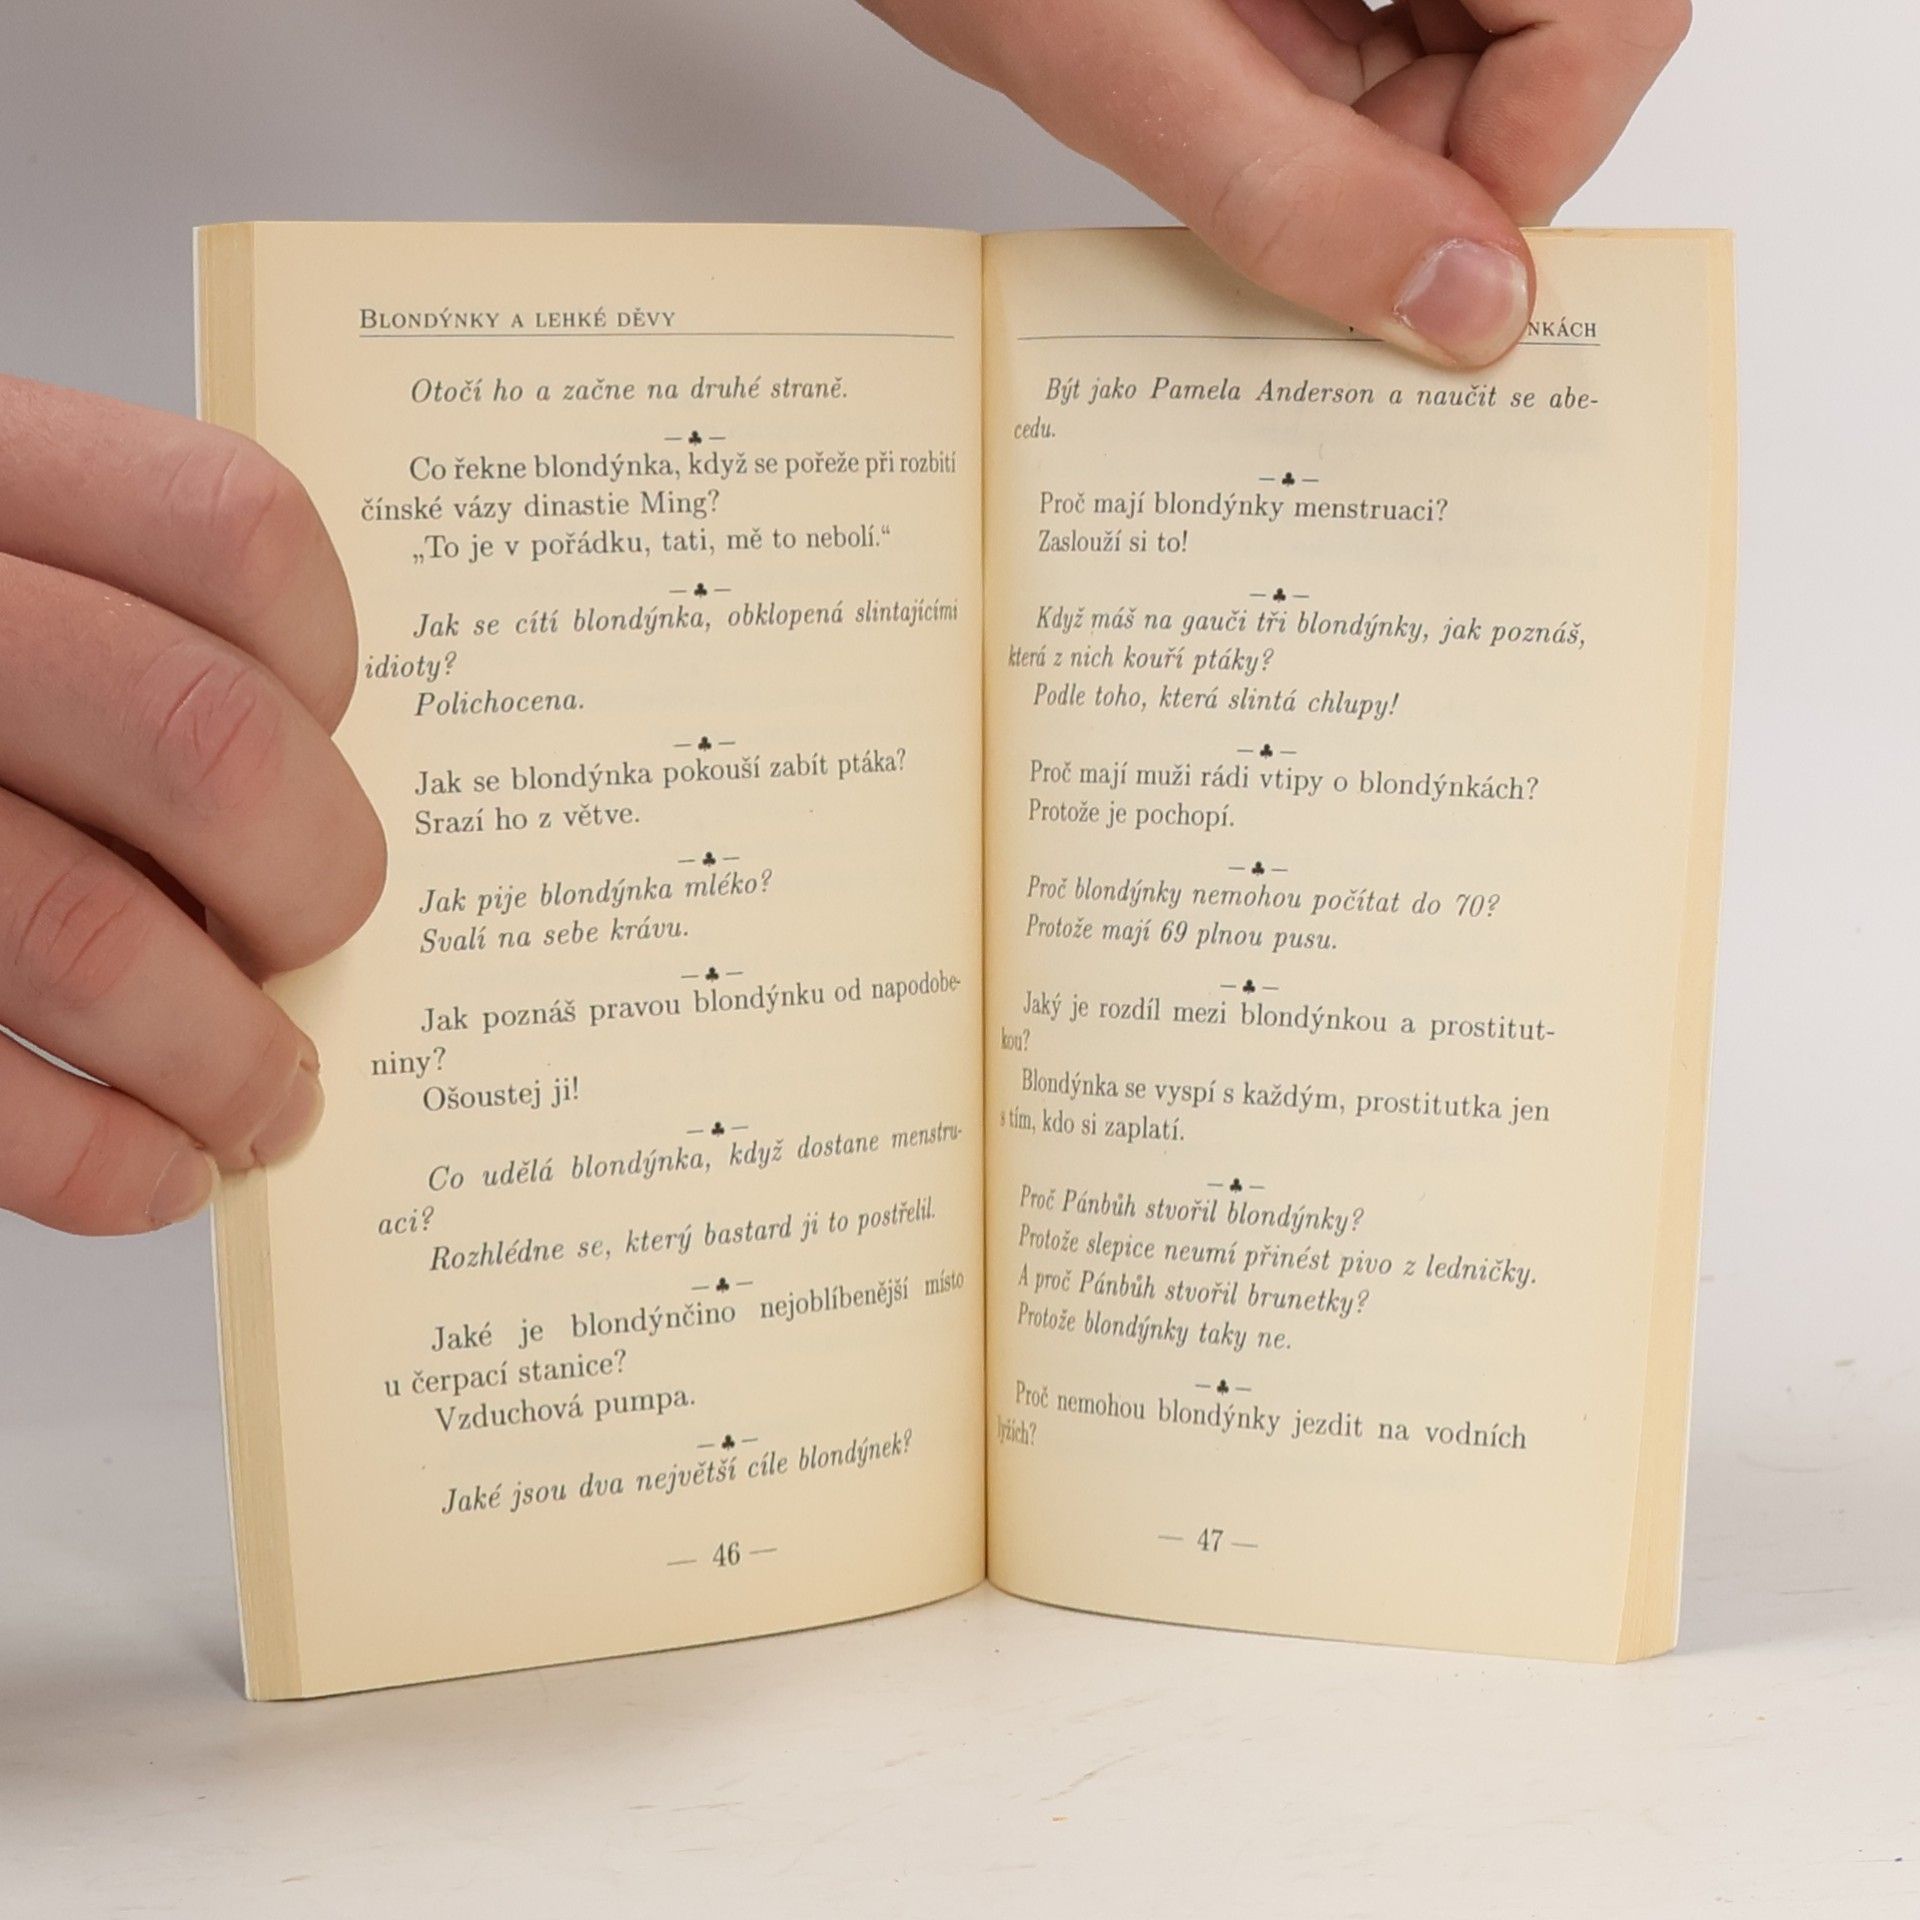 Blondýnky a lehké děvy
Otočí ho a začne na druhé straně.
Co řekne blondýnka, když se pořeže při rozbití
čínské vázy dinastie Ming?
„To je v pořádku, tati, mě to nebolí.“
Jak se cítí blondýnka, obklopená slintajícími
idioty?
Polichocena.
Jak se blondýnka pokouší zabít ptáka?
Srazí ho z větve.
Jak pije blondýnka mléko?
Svalí na sebe krávu.
Jak poznáš pravou blondýnku od napodobe-
niny?
Ošoustej ji!
Co udělá blondýnka, když dostane menstru-
aci?
Rozhlédne se, který bastard ji to postřelil.
Jaké je blondýnčino nejoblíbenější místo
u čerpací stanice?
Vzduchová pumpa.
Jaké jsou dva největší cíle blondýnek?
— 46 —
Být jako Pamela Anderson a naučit se abe-
cedu.
Proč mají blondýnky menstruaci?
Zaslouží si to!
Když máš na gauči tři blondýnky, jak poznáš,
která z nich kouří ptáky?
Podle toho, která slintá chlupy!
Proč mají muži rádi vtipy o blondýnkách?
Protože je pochopí.
Proč blondýnky nemohou počítat do 70?
Protože mají 69 plnou pusu.
Jaký je rozdíl mezi blondýnkou a prostitut-
kou?
Blondýnka se vyspí s každým, prostitutka jen
s tím, kdo si zaplatí.
Proč Pánbůh stvořil blondýnky?
Protože slepice neumí přinést pivo z ledničky.
A proč Pánbůh stvořil brunetky?
Protože blondýnky taky ne.
Proč nemohou blondýnky jezdit na vodních
lyžích?
— 47 —